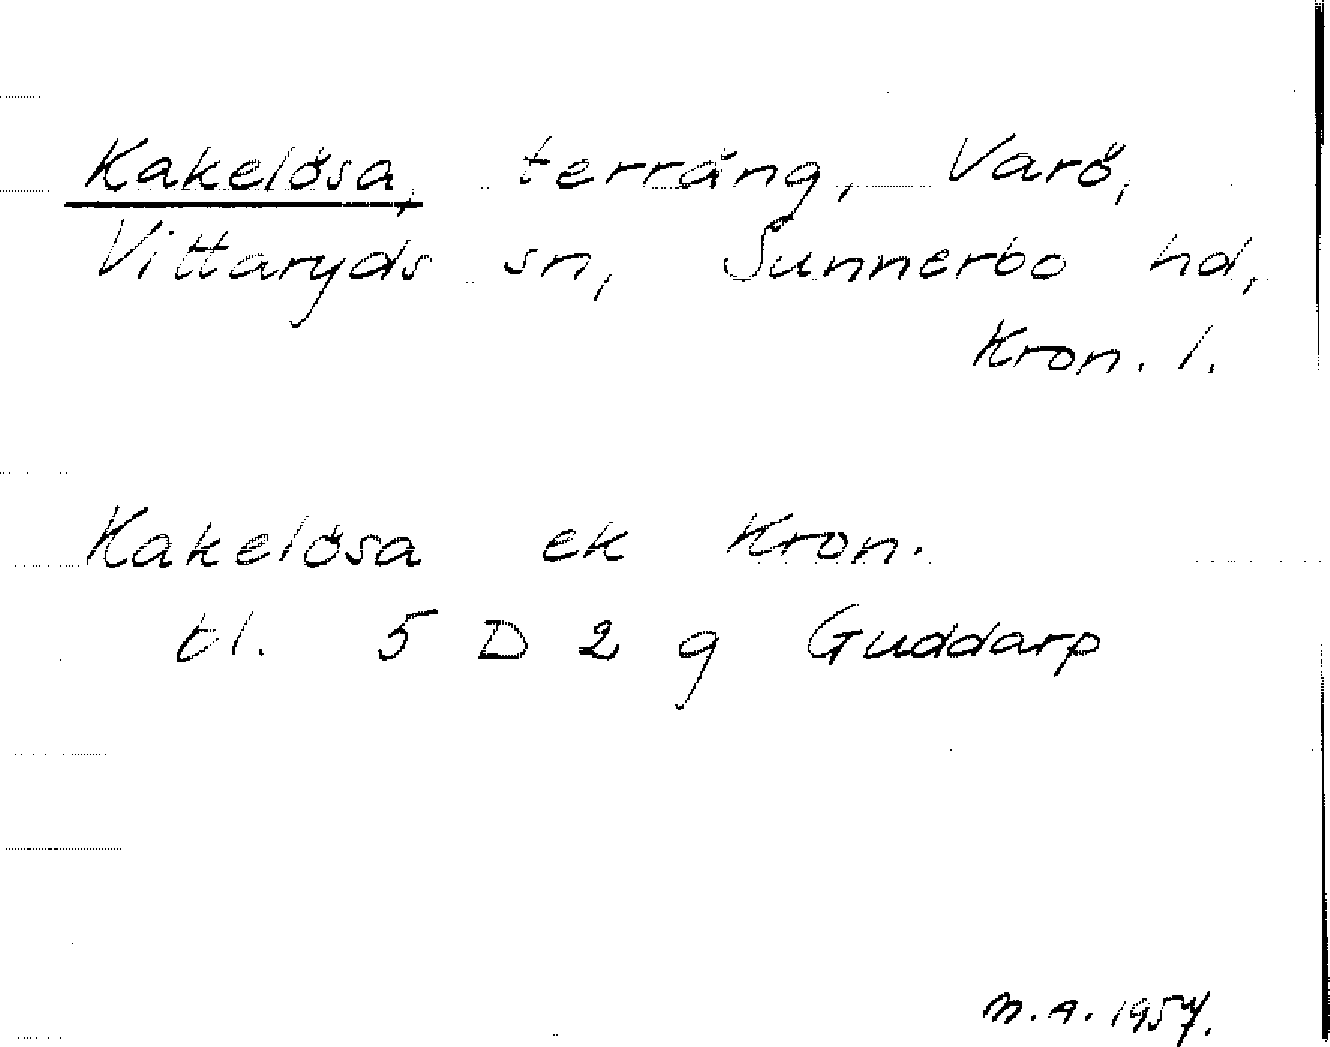 Kakelösa, terräng, Varö,
Vittaryds sn, Sunnerbo hd,
Kron. l.
Kakelösa ek Kron.
tl. 5 D 2 g Guddarp
M.A. 1957.